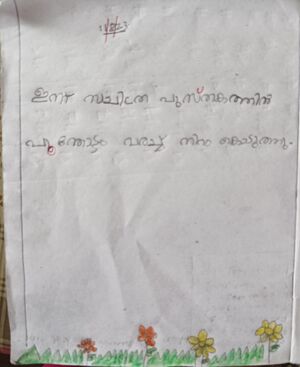 ഇന്ന് സചിത്ര പുസ്തകത്തിൽ
പൂന്തോട്ടം വരച്ച് നിറം കൊടുത്തു.